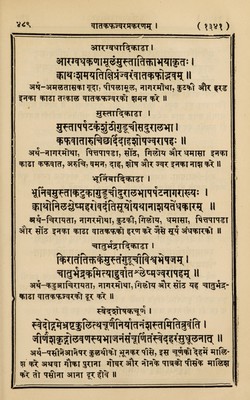 ४८९ वातकफज्वरप्रकरणम् । (१३४१)
आरग्वधादिकाढा ।
आरग्वधकणामूलमुस्तातिक्ताभयाकृतः ।
क्वाथः शमयति क्षिप्रं ज्वरं वातकफोद्भवम् ॥
अर्थ-अमलतासका गूदा, पीपलामूल, नागरमोथा, कुटकी और हरड
इनका काढा तत्काल वातकफज्वरको शमन करे ॥
मुस्तादिकाढा ।
मुस्तापर्पटकं शुंठीगुडूचीसदुरालभा ।
कफवातारुचिछर्दिदाहशोषज्वरापहः ॥
अर्थ-नागरमोथा, पित्तपापडा, सोंठ, गिलोय, और धमासा इनका
काढा कफवात, अरुचि, वमन, दाह, शोष और ज्वर इनका नाश करे ॥
भूनिंबादिकाढा ।
भूनिंबमुस्ताकटुकागुडूचीदुरालभापर्पटनागरास्यः ।
क्वाथोनिलश्लेष्महरोवदंतिसूर्योयथानाशयतेंधकारम् ॥
अर्थ-चिरायता, नागरमोथा, कुटकी, गिलोय, धमासा, पित्तपापडा
और सोंठ इनका काढा वातकफको हरण करे जैसे सूर्य अंधकारको ॥
चातुर्भद्रादिकाढा ।
किराततिक्तकंमुस्तंगुडूचीविश्वभेषजम् ।
चातुर्भद्रकमित्याहुर्वातश्लेष्मज्वरापहम् ॥
अर्थ-कडुआचिरायता, नागरमोथा, गिलोय और सोंठ यह चातुर्भद्र-
काढा वातकफज्वरको दूर करे ॥
स्वेदशोषकचूर्ण ।
स्वेदोद्गमेभ्रष्टकुलित्थचूर्णनियोतनंशस्तमितिब्रुवंति ।
जीर्णशकृद्गोलवणस्यभाजनंसंचूर्णितंस्वेदहरंसुधूलनात् ॥
अर्थ-पसीनेआनेपर कुलथीको भूनकर पीसे, इस चूर्णको देहमें मालि-
श करे अथवा गौका पुराना गोबर और नोनके पात्रको पीसके मालिस
करे तो पसीना आना दूर होवे ॥